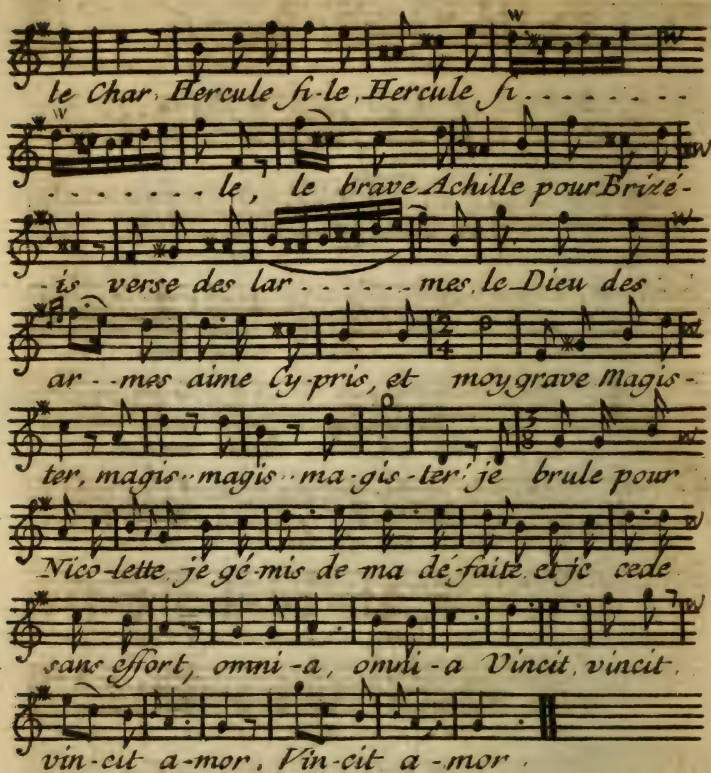 le Char, Hercule fi-le, Hercule fi . . . . . . . .
. . . . . . . . le, le brave Achille pour Brizé-
-is verse des lar . . . . . . mes, le Dieu des
ar - -mes aime Cy-pris, et moy grave Magis-
ter, magis - - magis - - ma-gis-ter je brule pour
Nico-lette, je gé-mis de ma dé-faite, et je cede
sans effort, omni-a, omni-a Vincit, vincit,
vin-cit a-mor, Vin-cit a-mor.